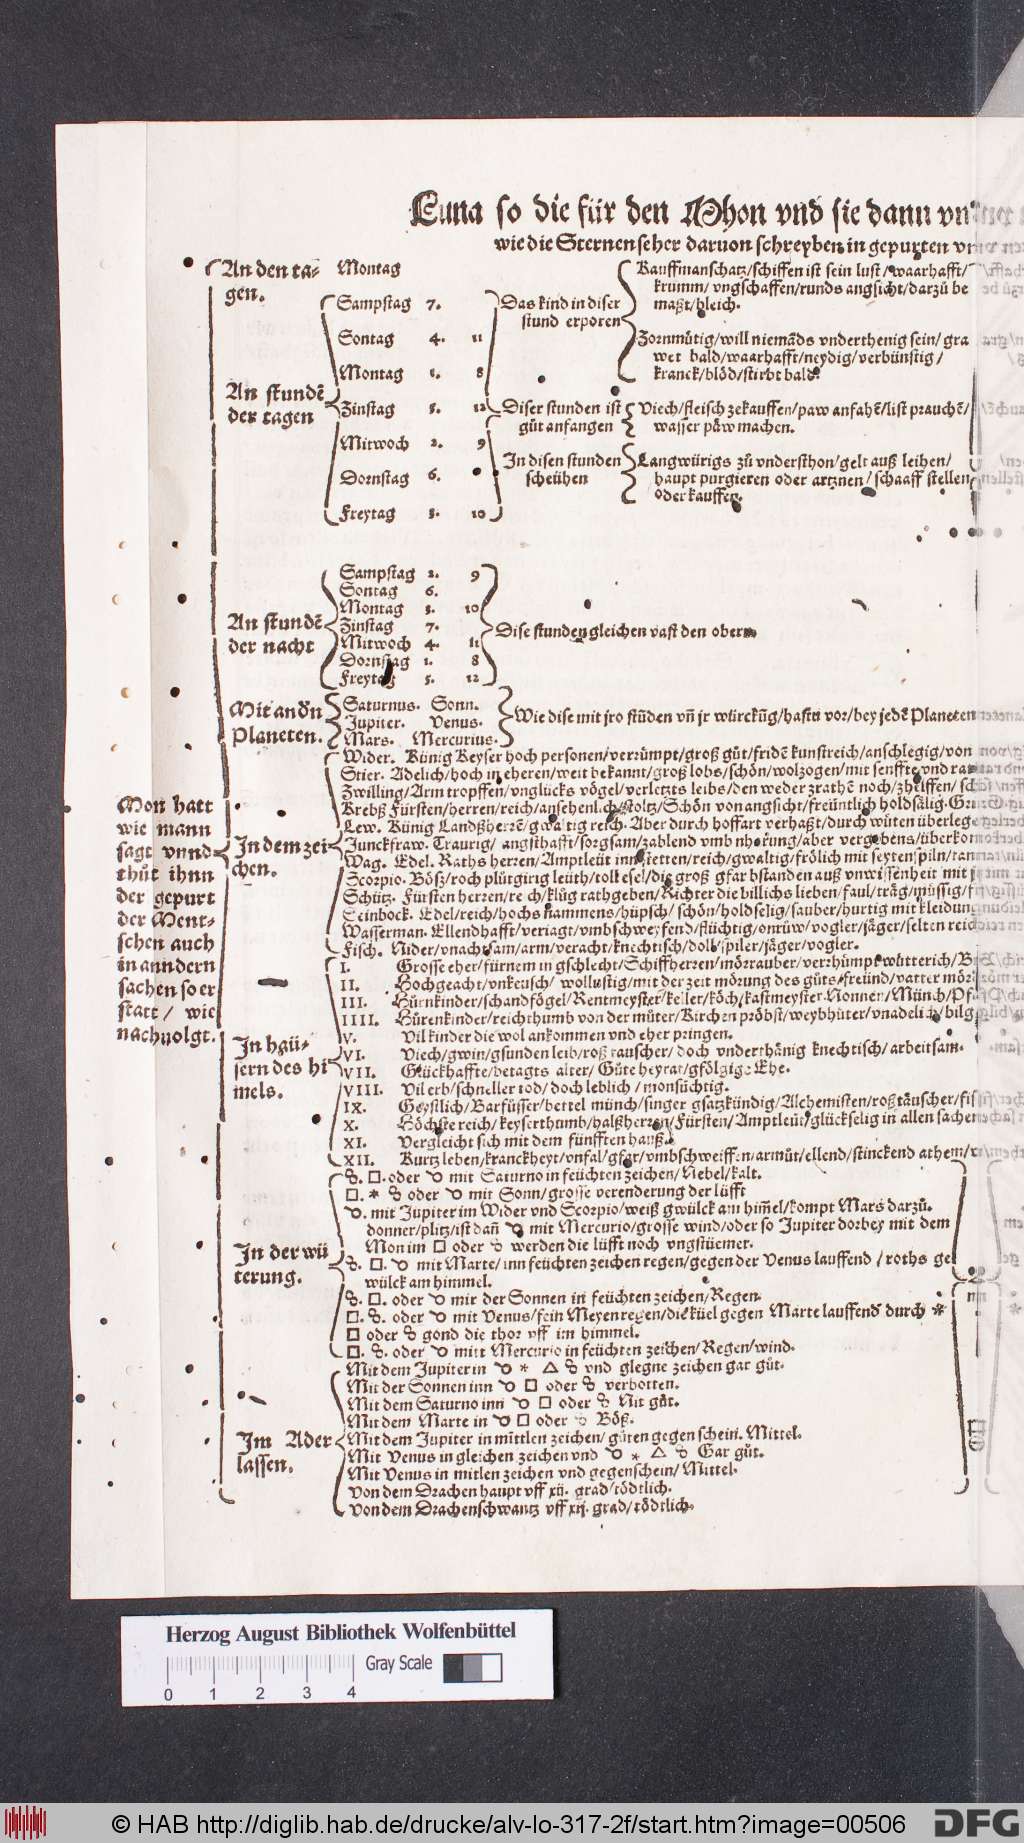 Luna so die für den Mhon vnd sie dann vn
wie die Sternenseher daruon schreyben in gepurten vn
An den ta-
gen.
Montag
An stundē
der tagen
Sampstag 7.
Sontag 4. 11
Montag 1. 8
Zinstag 5. 12
Mitwoch 2. 9
Dornstag 6.
Freytag 3. 10
Das kind in diser
stund erporen
Kauffmanschatz/schiffen ist sein lust/waarhafft/
krumm/vngschaffen/runds angsicht/darzů be
maßt/bleich.
Zornmůtig/will niemāds vnderthenig sein/gra
wet bald/waarhafft/neydig/verbünstig/
kranck/blöd/stirbt bald.
Diser stunden ist
gůt anfangen
Viech/fleisch zekauffen/paw anfahē/list prauchē/
wasser päw machen.
In disen stunden
scheühen
Langwürigs zů vndersthon/gelt auß leihen/
haupt purgieren oder artznen/schaaff stellen
oder kauffen.
An stundē
der nacht
Sampstag 2. 9
Sontag 6.
Montag 3. 10
Zinstag 7.
Mitwoch 4. 11
Dornstag 1. 8
Freytag 5. 12
Dise stunden gleichen vast den obern
Mit andn
Planeten.
Saturnus. Sonn.
Jupiter. Venus.
Mars. Mercurius.
Wie dise mit jro stūden vn̄ jr würckūg/hastu vor/bey jedē Planeten
Mon hatt
wie mann
sagt vnnd
thůt ihnn
der gepurt
der Ment-
schen auch
in anndern
sachen so er
statt/ wie
nachuolgt.
In dem zei
chen.
Wider. Künig Keyser hoch personen/verrümpt/groß gůt/fridē kunstreich/anschlegig/von
Stier. Adelich/hoch in eheren/weit bekannt/groß lobs/schön/wolzogen/mit senffte vnd
Zwilling/Arm tropffen/vnglücks vögel/verletzts leibs/den weder zrathē noch/zhelffen/
Krebß Fürsten/herren/reich/ansehenlich/stoltz/Schön von angsicht/freüntlich holdsälig.
Lew. Künig Landßherrē/gwaltig reich. Aber durch hoffart verhaßt/durch wůten überlege
Junckfraw. Traurig/ angsthafft/sorgsam/zablend vmb nherung/aber vergebens/überkom
Wag. Edel. Raths herren/Amptleüt inn stetten/reich/gwaltig/frölich mit seyten spiln/
Scorpio. Bösz/roch plůtgirig leüth/toll esel/die groß gfar bstanden auß vnwissenheit mit
Schütz. Fürsten herren/reich/klůg rathgeben/Richter die billichs lieben/faul/träg/müssig/
Steinbock. Edel/reich/hochs nammens/hüpsch/ schön/holdselig/sauber/hurtig mit kleidung
Wasserman. Ellendhafft/veriagt/vmbschweyfend/flüchtig/onrüw/vogler/jäger/selten reich
Fisch. Nider/vnachtsam/arm/veracht/knechtisch/doll/spiler/jäger/vogler.
In haü-
sern des hi
mels.
I. Grosse eher/fürnem in gschlecht/Schiffherren/mörrauber/verrhümpt wütterich/
II. Hochgeacht/vnkeusch/ wollustig/mit der zeit mörung des gůts/freünd/vatter mör
III. Hůrnkinder/schandfögel/Rentmeyster/keller/köch/kastmeyster Nonnen/Münch/
IIII. Hůrenkinder/reichthumb von der můter/Kirchen pröbst/weybhüter/vnadelich/bilg
V. Vil kinder die wol ankommen vnd eher pringen.
VI. Viech/gwin/gsunden leib/roß tauscher/ doch vnderthänig knechtisch/arbeitsam.
VII. Glückhaffte/betagts alter/ Gůte heyrat/gfölgige Ehe.
VIII. Vil erb/schneller tod/doch leblich/monsüchtig.
IX. Geystlich/Barfüsser/bettel münch/singer gsatzkündig/Alchemisten/roß täuscher/
X. Höchste reich/keyserthumb/halßherren/Fürsten/Amptleüt/glückselig in allen sachen
XI. Vergleicht sich mit dem fünfften hauß.
XII. Kurtz leben/kranckheyt/vnfal/gfar/vmbschweiffen/armůt/ellend/stinckend athem/
In der wü
terung.
☍. □. oder ☌ mit Saturno in feüchten zeichen/Nebel/kalt.
□. * ☍ oder ☌ mit Sonn/grosse verenderung der lüfft
☌. mit Jupiter im Wider vnd Scorpio/weiß gwülck am him̄el/kompt Mars darzů.
donner/plitz/ist dan̄ ☌ mit Mercurio/grosse wind/oder so Jupiter dorbey mit dem
Mon im □ oder ☍ werden die lüfft noch vngstüemer.
☍. □. ☌ mit Marte/inn feüchten zeichen regen/gegen der Venus lauffend/roths ge
wülck am himmel.
☍. □. oder ☌ mit der Sonnen in feüchten zeichen/Regen.
□. ☍. oder ☌ mit Venus/fein Meyenregen/die küel gegen Marte lauffend durch *
□ oder ☍ gond die thor vff im himmel.
□. ☍. oder ☌ mitt Mercurio in feüchten zeichen/Regen/wind.
Im Ader
lassen.
Mit dem Jupiter in ☌ * △ ☍ vnd glegne zeichen gar gůt.
Mit der Sonnen inn ☌ □ oder ☍ verbotten.
Mit dem Saturno inn ☌ □ oder ☍ Nit gůt.
Mit dem Marte in ☌ □ oder ☍ Böß.
Mit dem Jupiter in mittlen zeichen/ gůten gegen schein. Mittel.
Mit Venus in gleichen zeichen vnd ☌ * △ ☍ Gar gůt.
Mit Venus in mitlen zeichen vnd gegenschein/Mittel.
Von dem Drachen haupt vff xij. grad/tödtlich.
Von dem Drachenschwantz vff xij. grad/tödtlich.
Herzog August Bibliothek Wolfenbüttel
Gray Scale
0 1 2 3 4
© HAB http://diglib.hab.de/drucke/alv-lo-317-2f/start.htm?image=00506
DFG